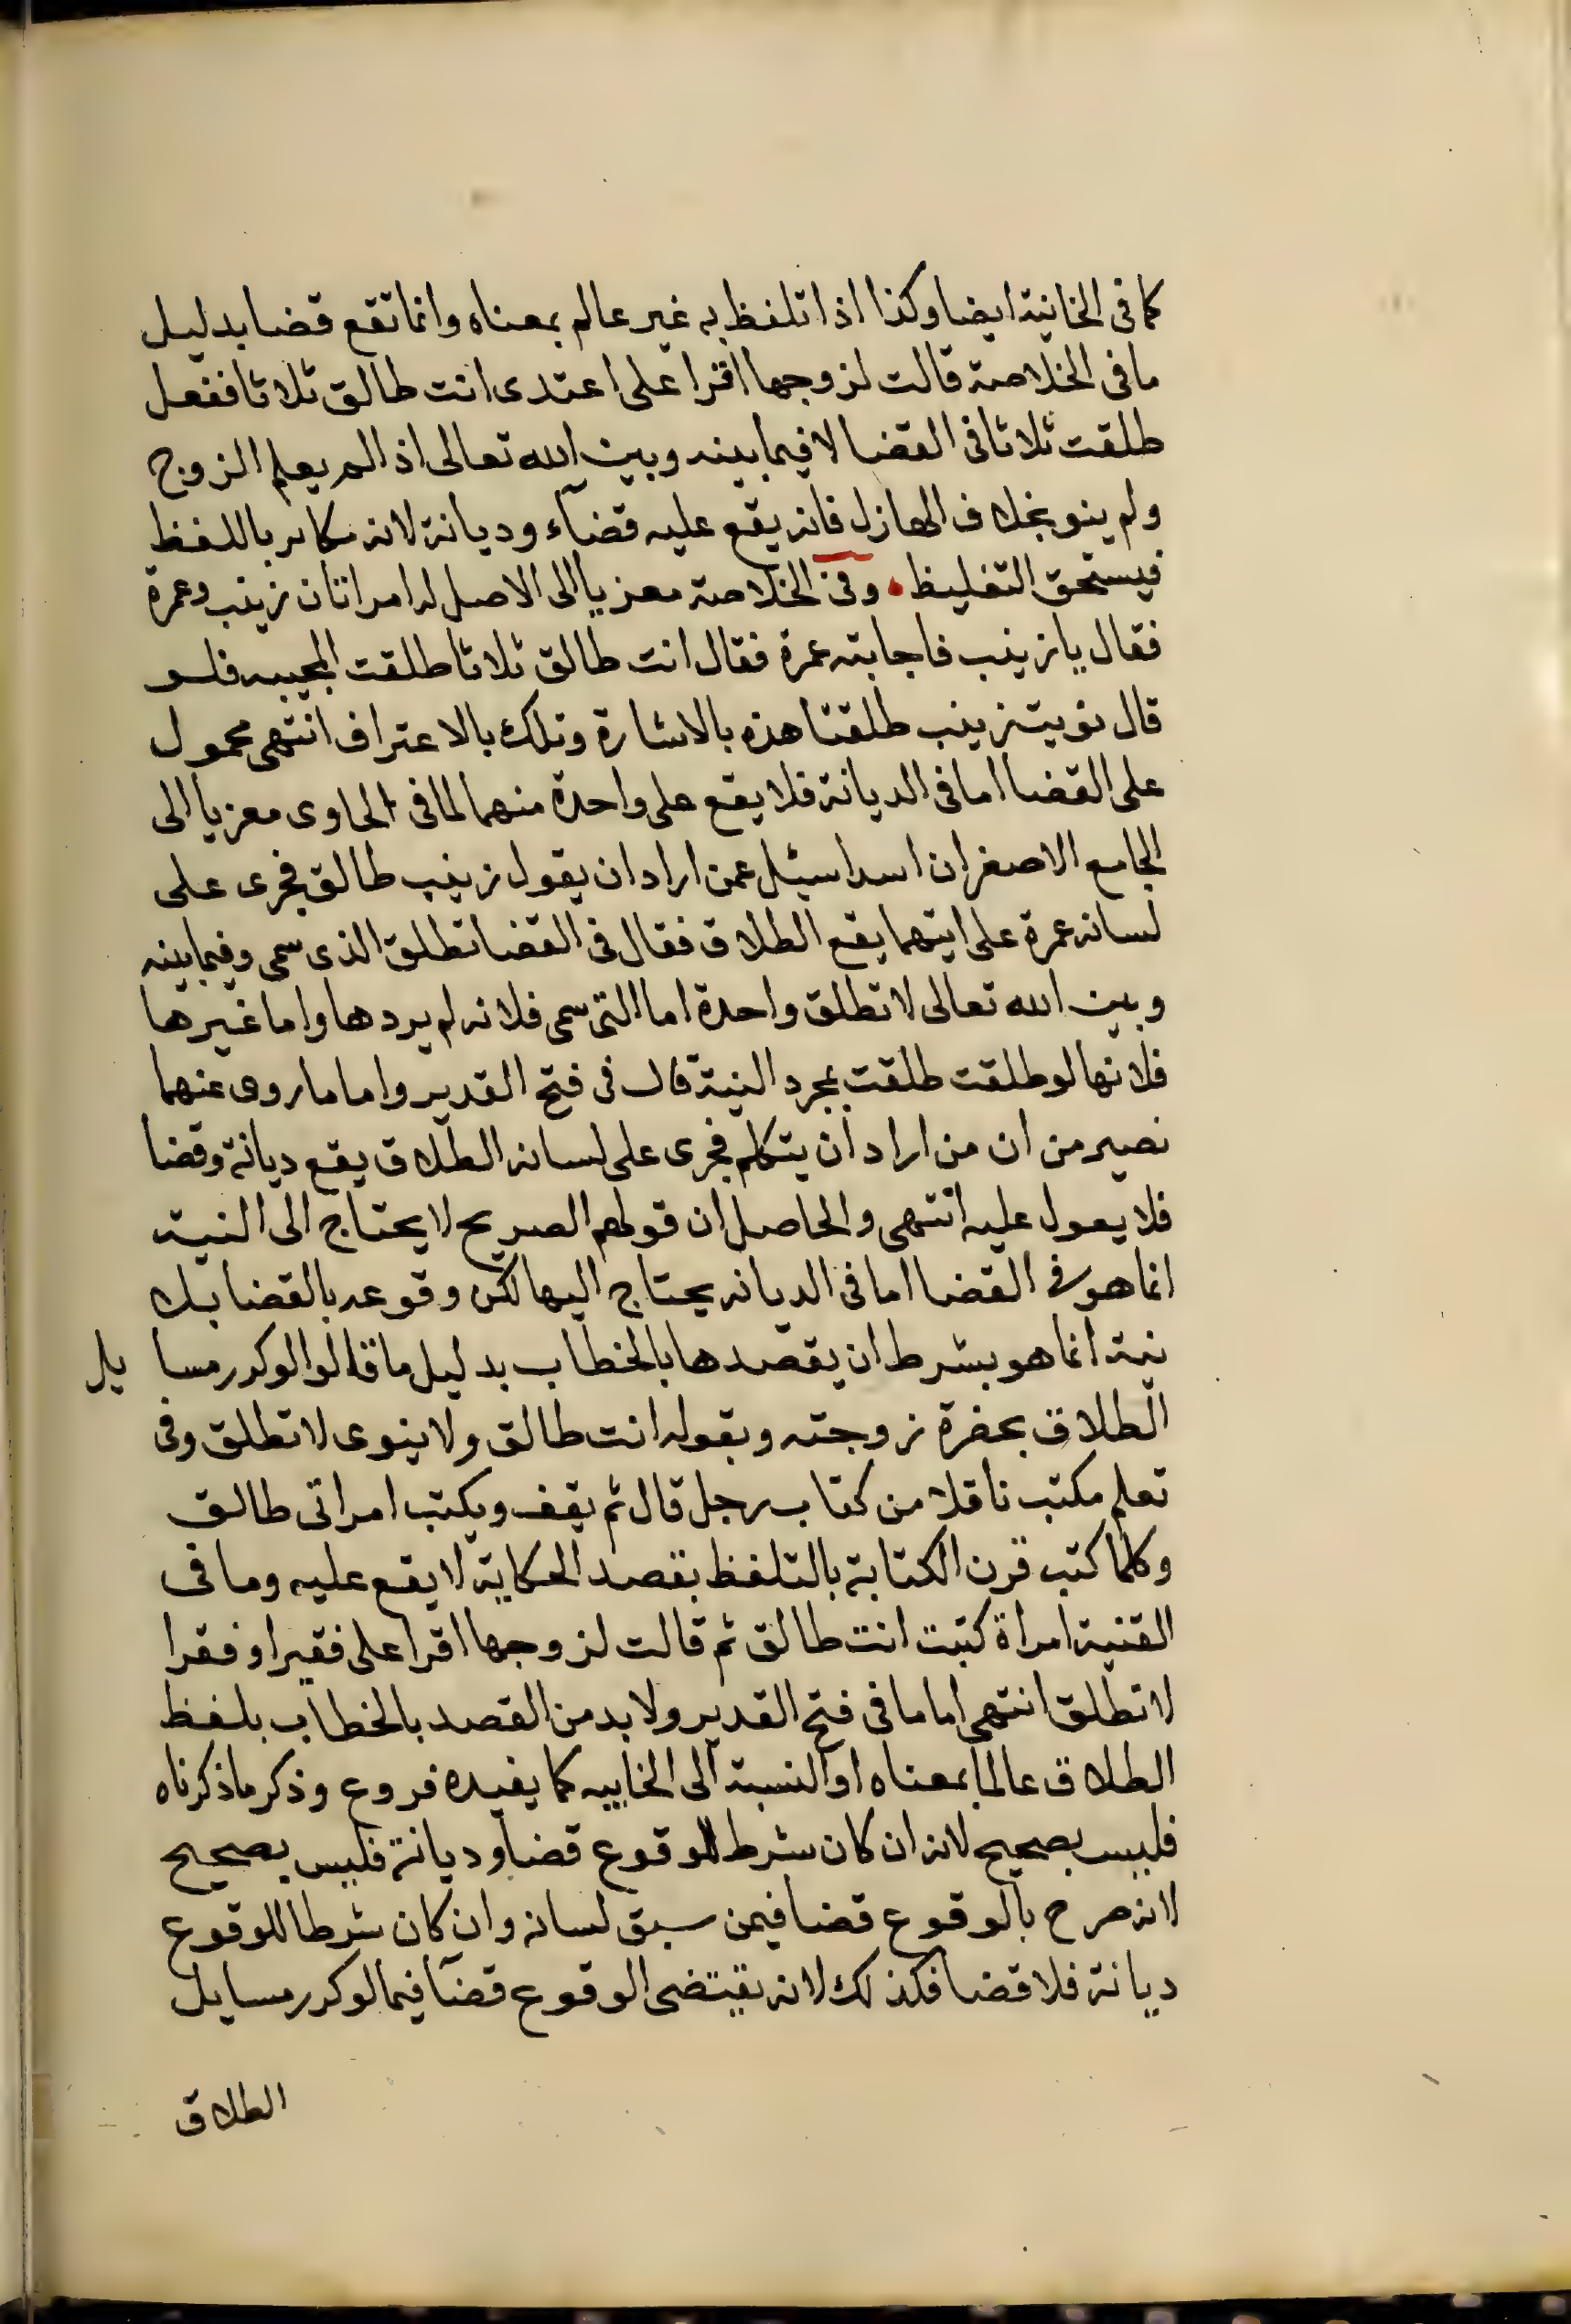 كما فى الخانية ايضا وكذا اذا تلفظ به غير عالم بمعناه وانما تقع قضا بدليل
ما فى الخلاصة قالت لزوجها اقرا على اعتدى انت طالق ثلاثا ففعل
طلقت ثلاثا فى القضا لا فيما بينه وبين الله تعالى اذا لم يعلم الزوج
ولم ينو بخلاف الهازل فانه يقع عليه قضآء وديانة لانه مكابر باللفظ
فيستحق التغليظ • وفى الخلاصة معزيا الى الاصل له امراتان زينب وعمرة
فقال يا زينب فاجابته عمرة فقال انت طالق ثلاثا طلقت المجيبه فلو
قال نويت زينب طلقتا هذه بالاشارة وتلك بالاعتراف انتهى محمول
على القضا اما فى الديانة فلا يقع على واحدة منهما لما فى الحاوى معزيا الى
الجامع الاصغر ان اسدا سئل عمن اراد ان يقول زينب طالق فجرى على
لسانه عمرة على ايتهما يقع الطلاق فقال فى القضا تطلق الذى سمى وفيما بينه
وبين الله تعالى لا تطلق واحدة اما التى سمى فلانه لم يردها واما غيرها
فلانها لو طلقت طلقت بمجرد النية قال فى فتح القدير واما ما روى عنهما
نصير من ان من اراد ان يتكلم فجرى على لسانه الطلاق يقع ديانة وقضا
فلا يعول عليه انتهى والحاصل ان قولهم الصريح لا يحتاج الى النية
انما هو فى القضا اما فى الديانه يحتاج اليها لكن وقوعه بالقضا بلا
نية انما هو بشرط ان يقصدها بالخطاب بدليل ما قالوا لو كرر مسا يل
الطلاق بحضرة زوجته وبقوله انت طالق ولا ينوى لا تطلق وفى
تعلم مكتب ناقلا من كتاب رجل قال ثم يقف ويكتب امراتى طالق
وكلما كتب قرن الكتابة بالتلفظ بقصد الحكاية لا يقع عليه وما فى
القنية امراة كتبت انت طالق ثم قالت لزوجها اقرا على فقيرا وفقرا
لا تطلق انتهى اما ما فى فتح القدير ولا بد من القصد بالخطاب بلفظ
الطلاق عالما بمعناه او النسبة الى الخابيه كما يفيده فروع وذكر ما ذكرناه
فليس بصحيح لانه ان كان شرط للوقوع قضا وديانة فليس بصحيح
لانه صرح بالوقوع قضا فيمن سبق لسانه وان كان شرطا للوقوع
ديانة فلا قضا فكذلك لانه يقتضى الوقوع قضآ فيما لو كرر مسايل
الطلاق